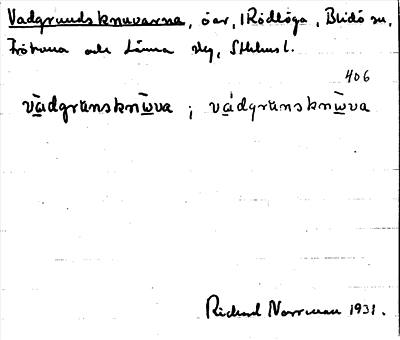 Vadgrundsknuvarna, öar, i Rödlöga, Blidö sn,
Frötuna och Länna skg, Sthlms l.
406
vàdgrunsknūva ; vádgrunsknūva
Richard Norrman 1931.